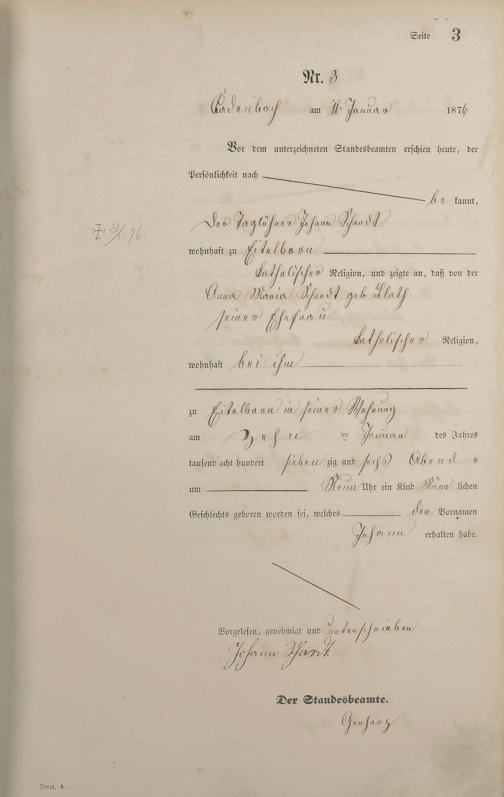 Seite 3
Nr. 3
Cadenbach am 11. Januar 1876
Vor dem unterzeichneten Standesbeamten erschien heute, der
Persönlichkeit nach
be kannt,
der Taglöhner Johann Schardt
wohnhaft zu Eitelborn
katholischer Religion, und zeigte an, daß von der
Anna Maria Schardt geb.
seiner Ehefrau
katholischer Religion,
wohnhaft bei ihm
zu Eitelborn in seiner Wohnung
am zehn ten Januar des Jahres
tausend acht hundert sieben zig und sechs Abend s
um Neun Uhr ein Kind männ lichen
Geschlechts geboren worden sei, welches den Vornamen
Johann erhalten habe.
Vorgelesen, genehmigt und unterschrieben
Johann Schardt
Der Standesbeamte.
Form. A.